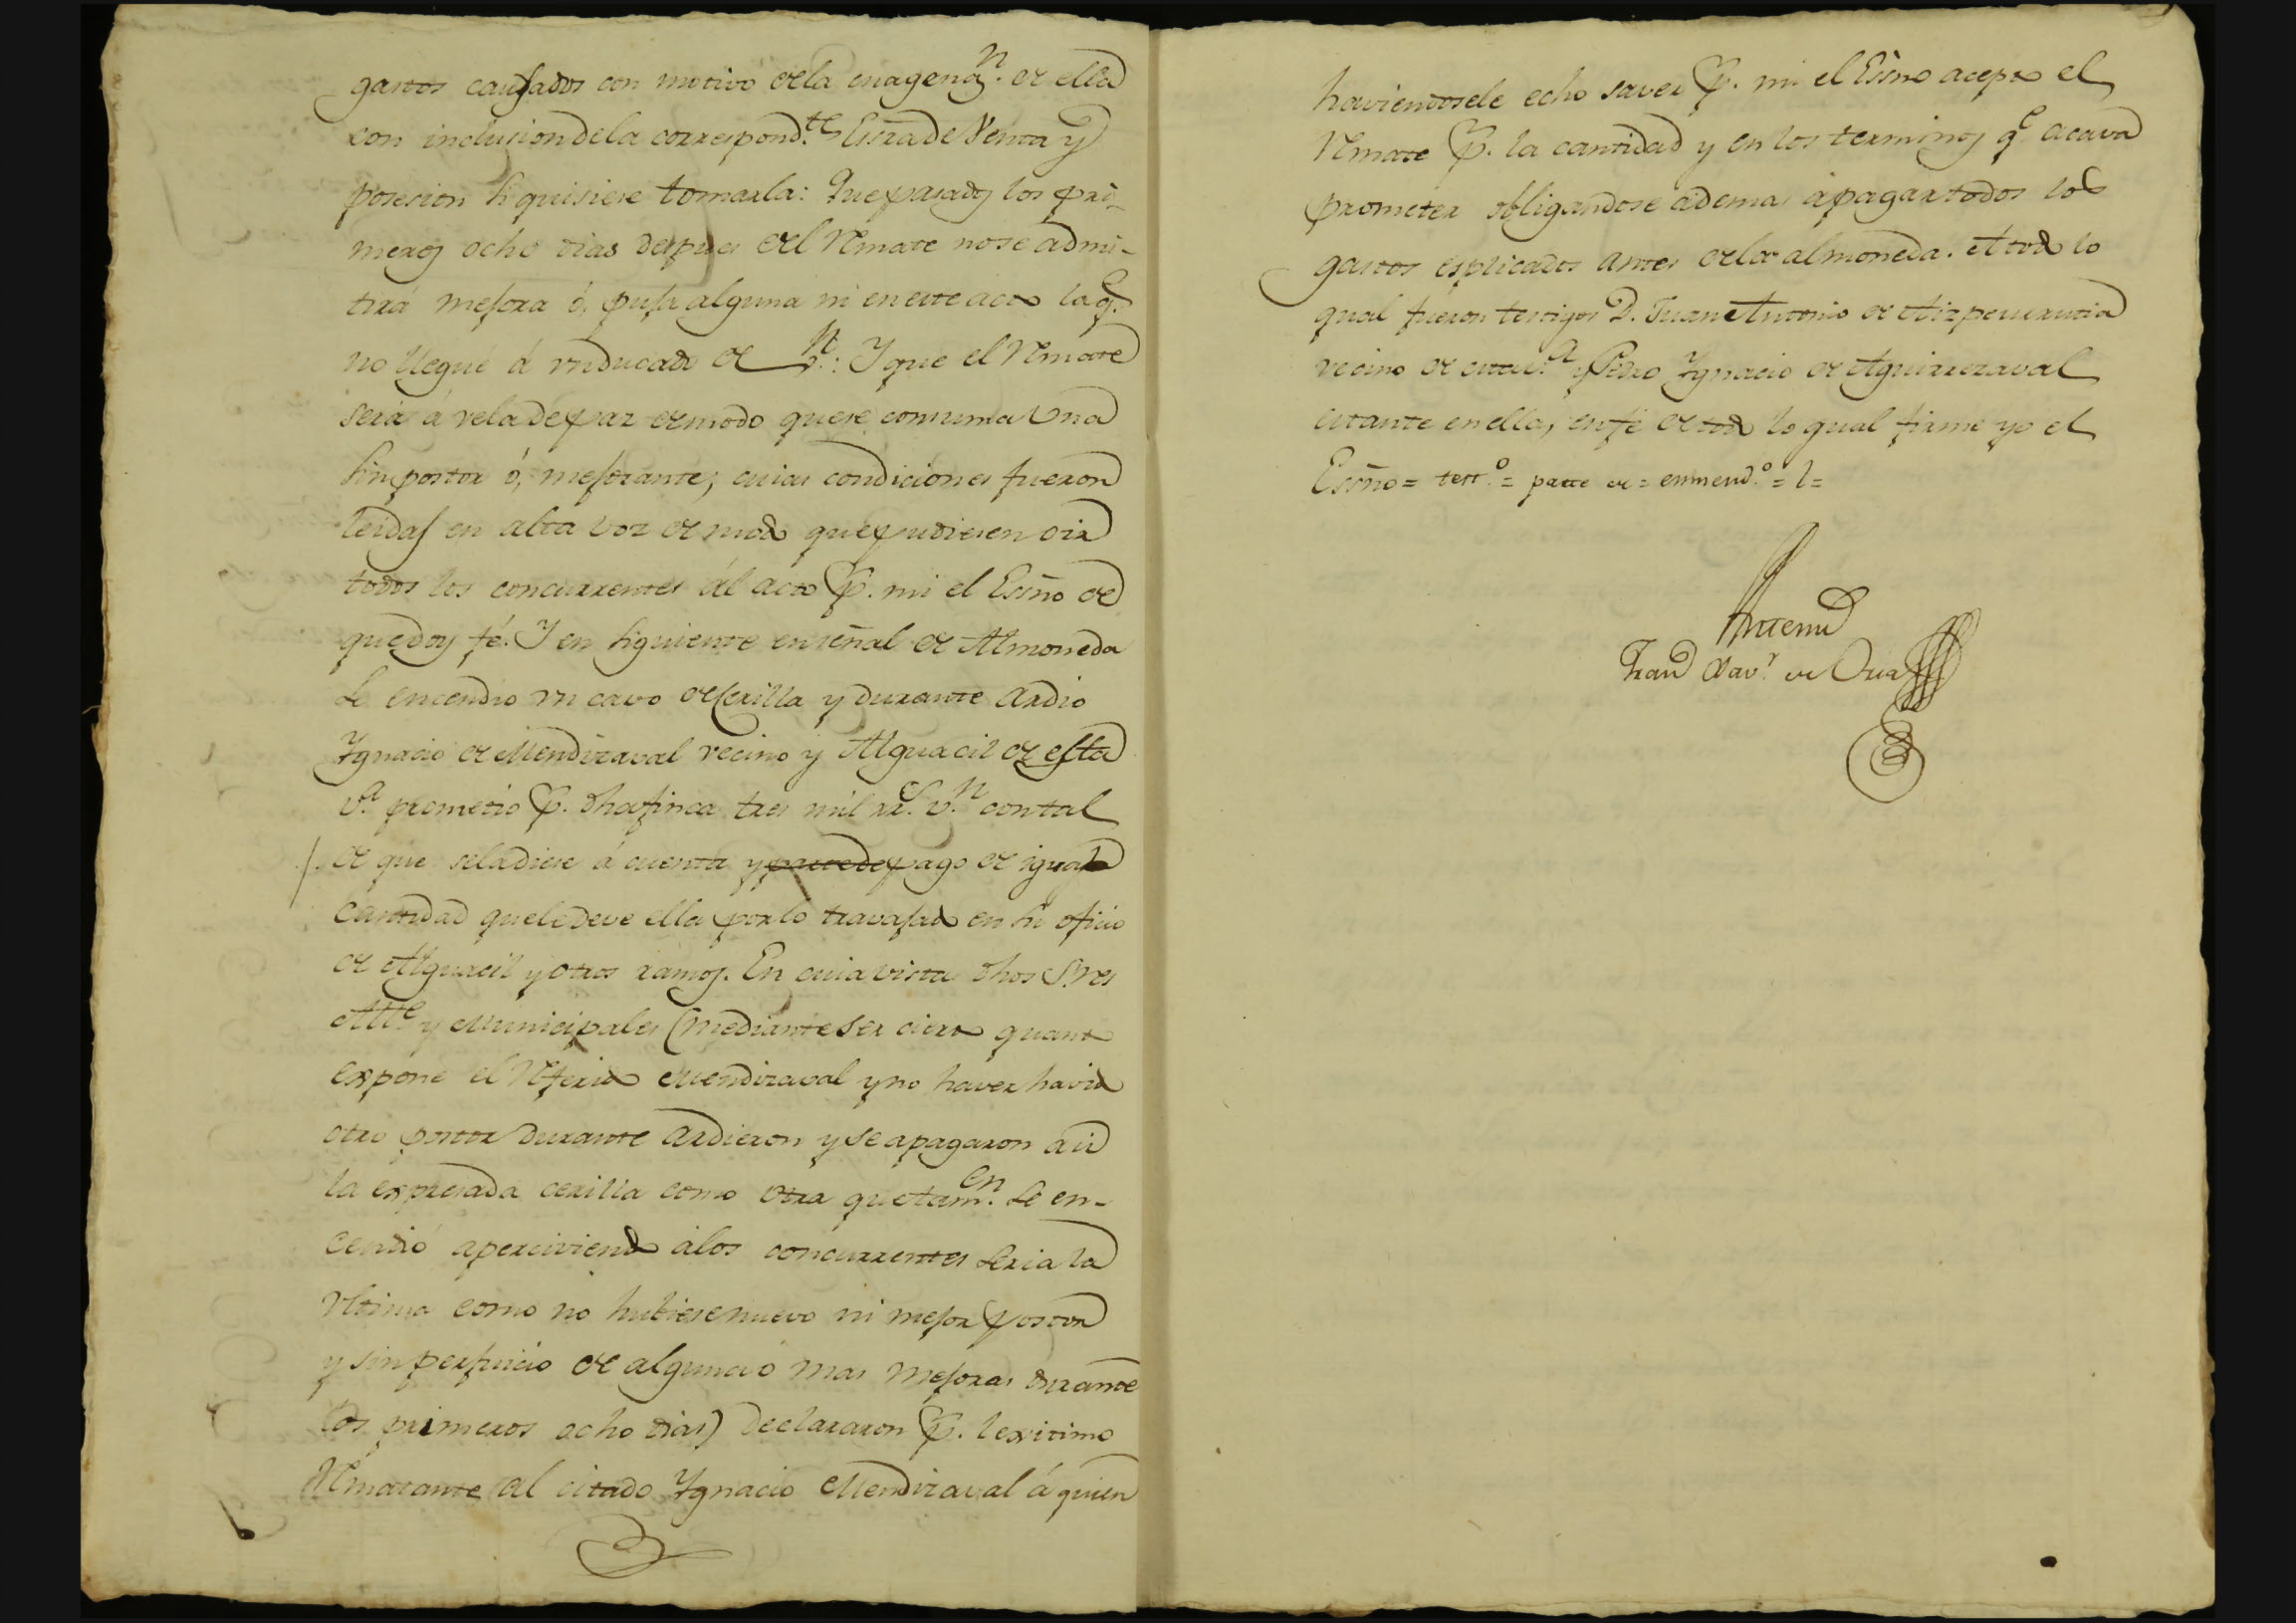 gastos causados con motivo de la enagenⁿ. de ella
con inclusion de la correspond.te Escra de Venta y
posesion si quisiere tomarla: Que pasados los pri-
meros ocho dias despues del Remate no se admi-
tirá mejora ó, puja alguna ni en este acto la q.e
no llegue á un ducado de v.n: Y que el Remate
será á vela de paz de modo que se consuma una
sin postor ó, mejorante; cuias condiciones fueron
leidas en alta voz de modo que pudiesen oir
todos los concurrentes ál acto p. mi el Essno de
que doy fé. Y en siguiente en señal de Almoneda
se encendio un cavo de cerilla y durante ardio
Ygnacio de Mendizaval vecino y Alguacil de esta
v.a prometio p. dha finca tres mil rr.s v.n con tal
de que se la diese á cuenta y parte de pago de igual
cantidad que le deve ella por lo travajado en su oficio
de Alguacil y otros ramos. En cuia vista dhos S.res
Alc.e y Municipales (mediante ser cierto quanto
expone el Referido Mendizaval y no haver havido
otro postor durante ardieron y se apagaron asi
la expresada cerilla como otra que tam.en se en-
cendió aperciviendo á los concurrentes seria la
ultima como no hubiese nuevo ni mejor postor
y sin perjuicio de alguna ó mas mejoras durante
los primeros ocho dias) declararon p. lexitimo
Rematante al citado Ygnacio Mendizaval á quien
haviendosele echo saver p. mi el Essno acepto el
Remate p. la cantidad y en los terminos q.e acava
prometer obligandose ademas á pagar todos los
gastos esplicados antes de la almoneda. A todo lo
qual fueron testigos D. Juan Antonio de Aizpeurutia
vecino de esta v.a y Pedro Ygnacio de Aguirrezaval
estante en ella, en fé de todo lo qual firme yo el
Essno = test.o = parte de = enmend.o = l =
Antemi
Fran.co Xav.r de